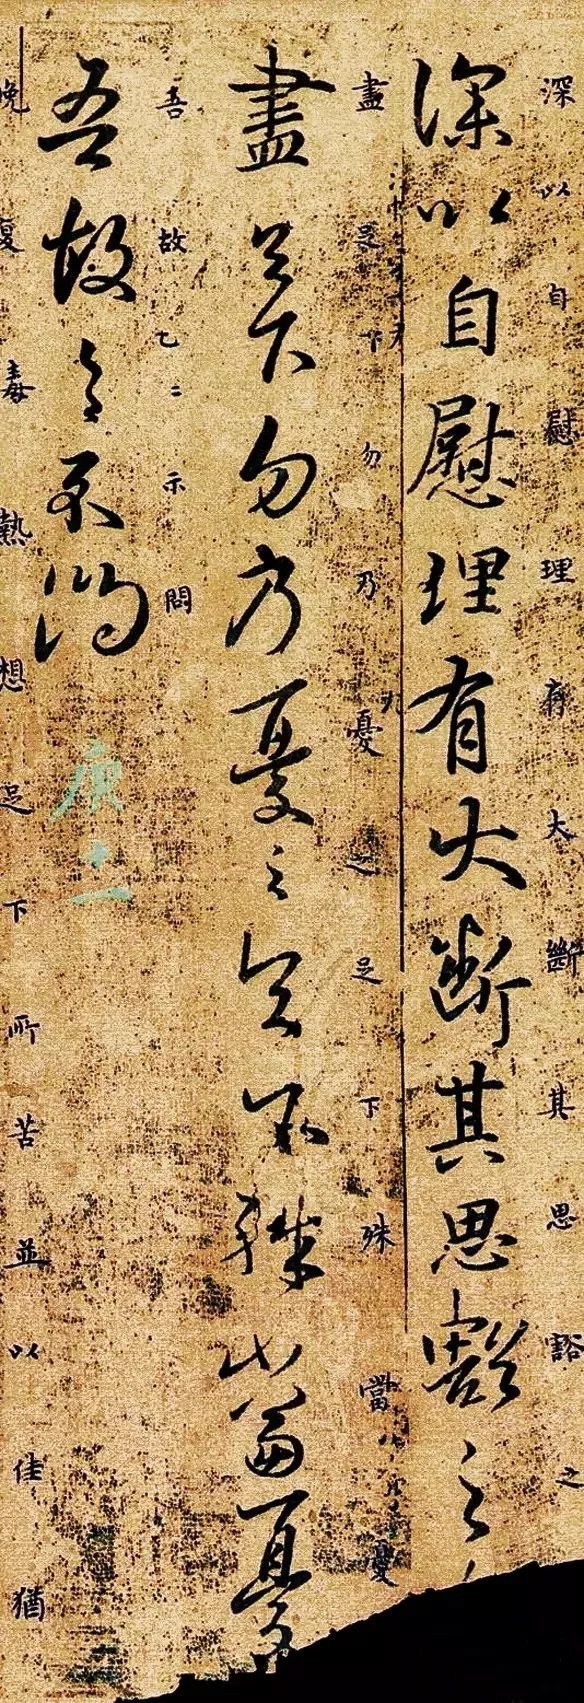 深以自慰理有大斷其思豁之
深以自慰理有大斷其思豁之
盡足下勿乃憂之足下殊當憂
盡足下勿乃憂之足下殊當憂
吾故乙二示問
吾故示問
晚復毒熱想足下所苦並以佳猶